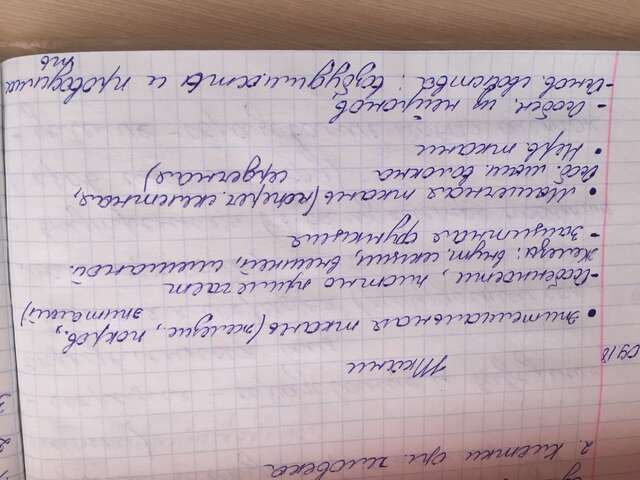 2. клетки орг. человека
09.18
Ткани
• Эпителиальная ткань (железис., покров.,
эпителий)
- Особенности, плотно прилегает
железы: внут. секреции, внешней, смешаной.
- защитная функция
• Мышечная ткань (попереч. скелетная,
сердечная)
Особ. мыш. волокна
• Нерв. ткани
- Особен. из нейронов
- Основ. свойства: возбудимость и проводимо
ть